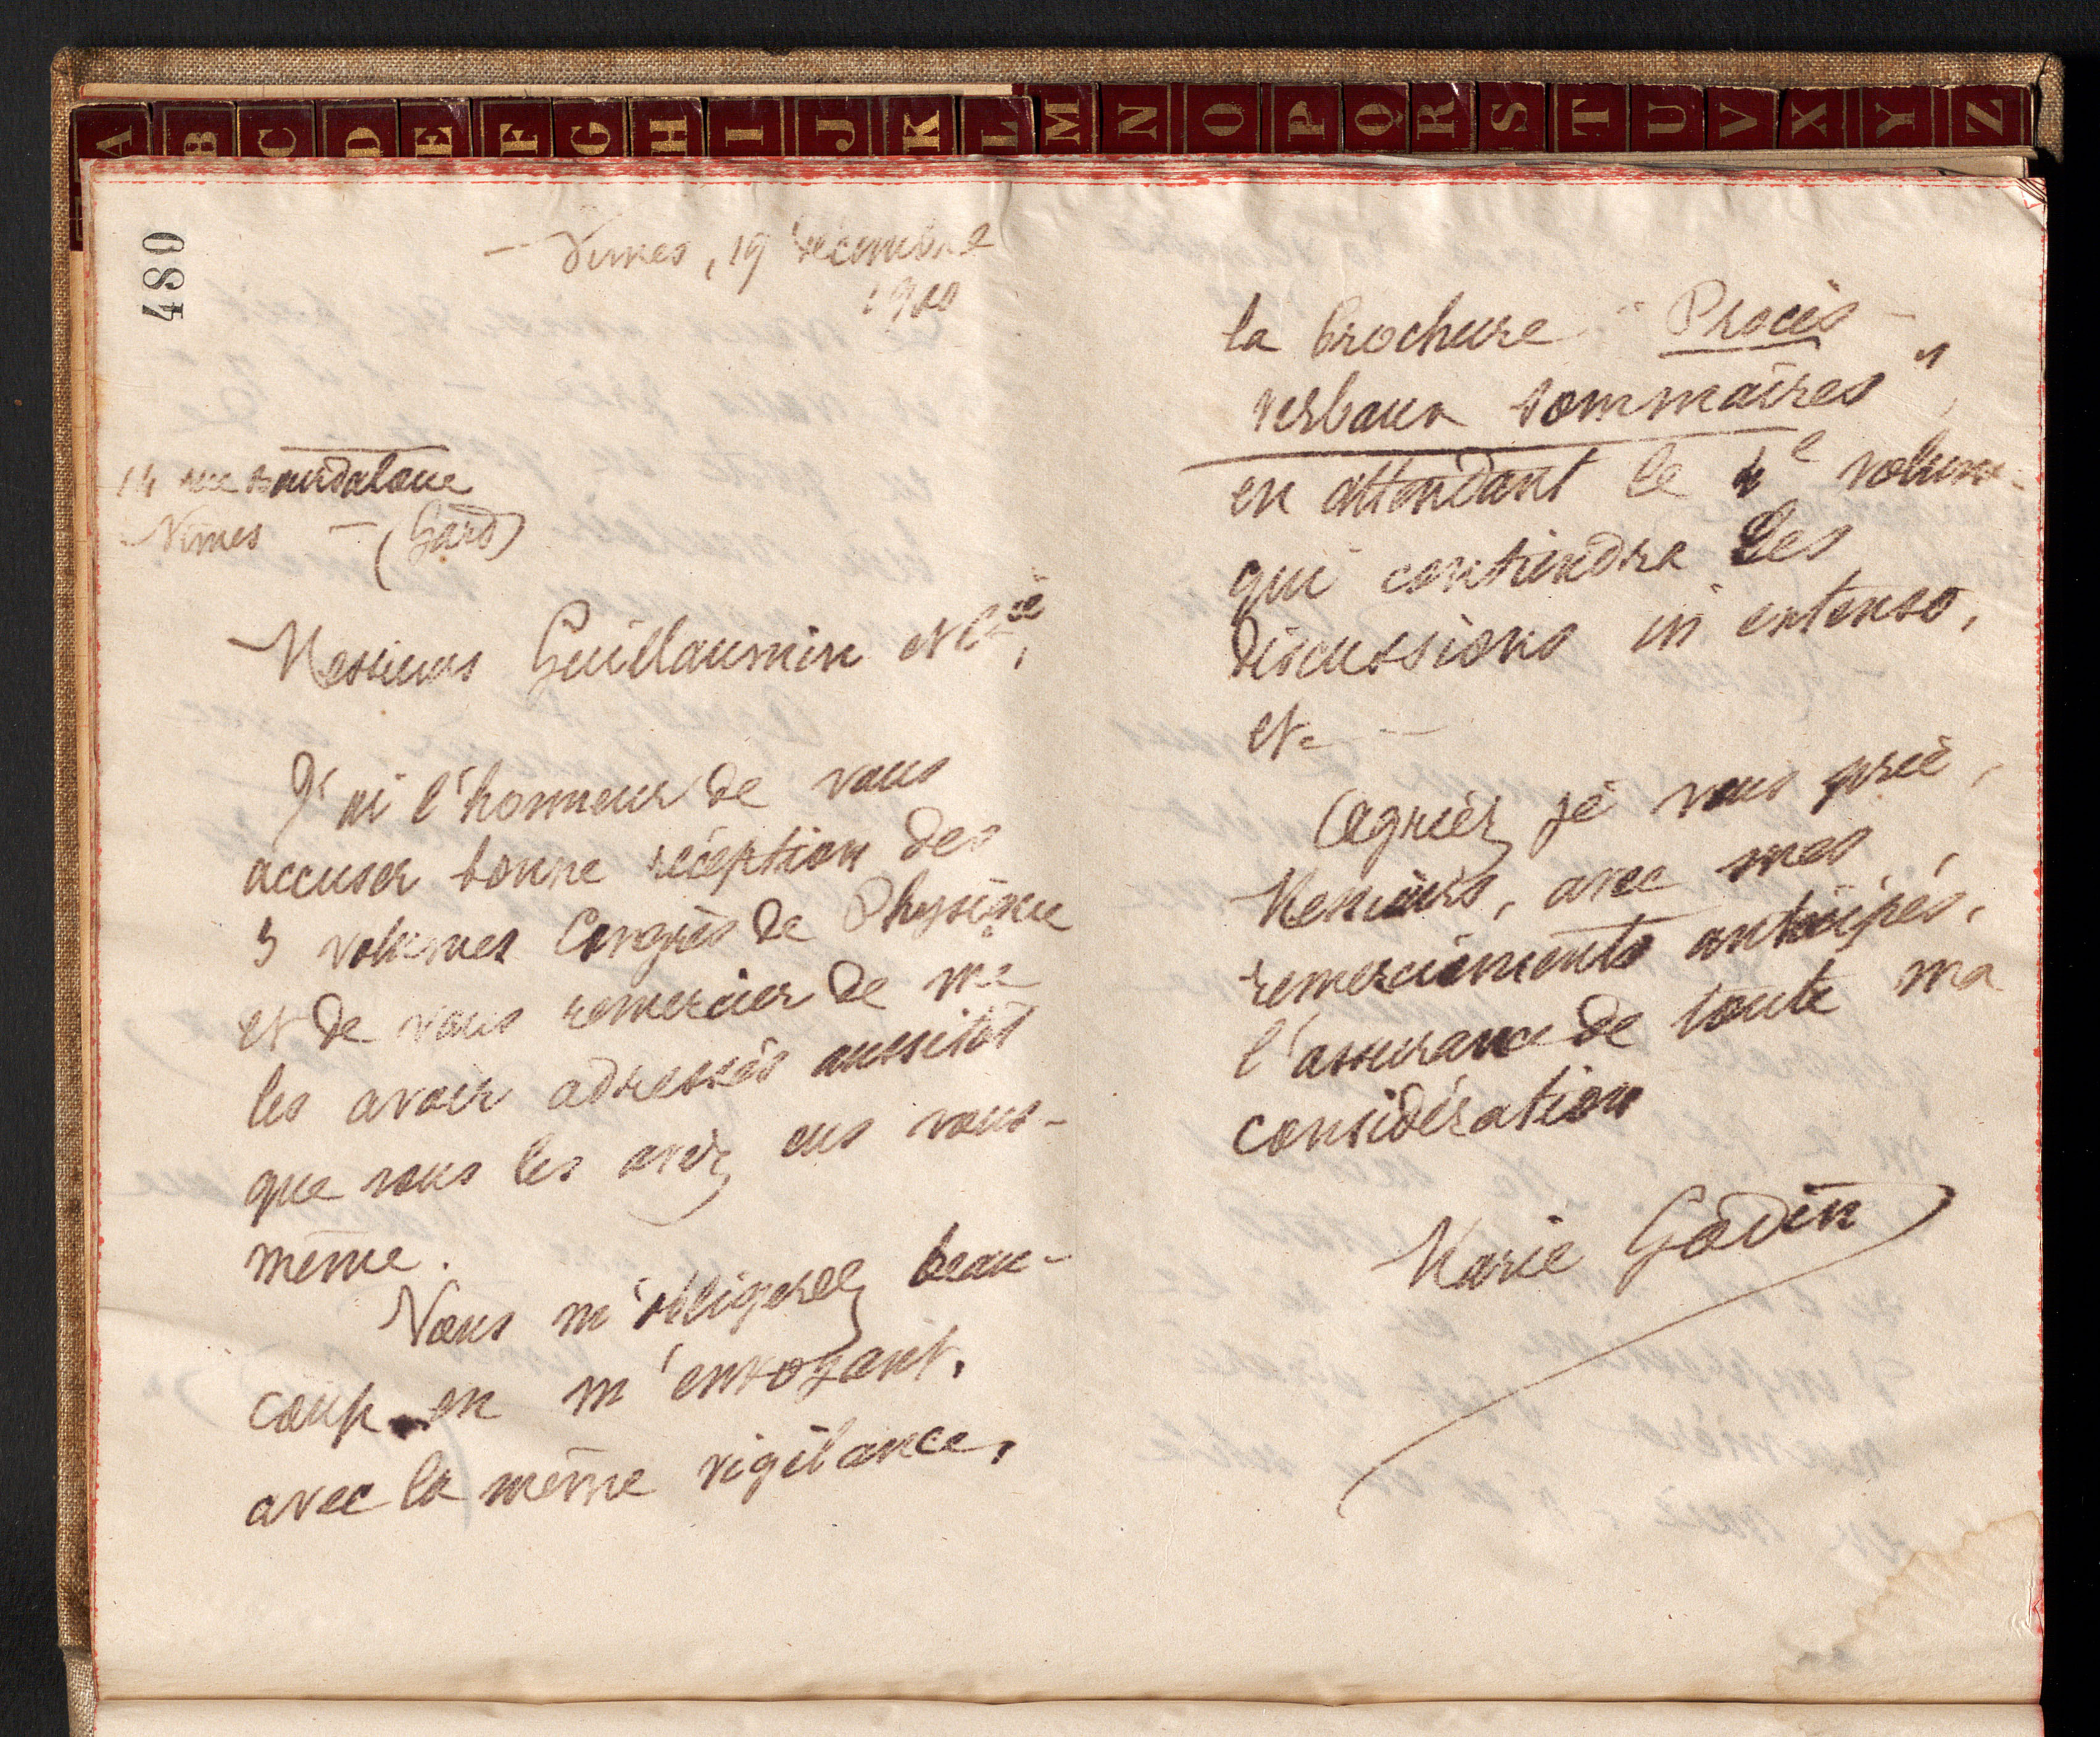 A B C D E F G H I J K L M N O P Q R S T U V X Y Z
480
Nimes, 19 décembre
1900
14 rue Bourdaloue
Nimes — (Gard)
Messieurs Guillaumin et Cie,
J'ai l'honneur de vous
accuser bonne réception des
3 volumes Congrès de Physique
et de vous remercier de me
les avoir adressés aussitôt
que vous les avez eus vous-
même.
Vous m'obligerez beau-
coup en m'envoyant,
avec la même vigilance,
la brochure "Procès-
verbaux sommaires",
en attendant le 4e volume
qui contiendra les
discussions in extenso,
etc —
Agréez je vous prie,
Messieurs, avec mes
remerciements anticipés,
l'assurance de toute ma
considération
Marie Godin